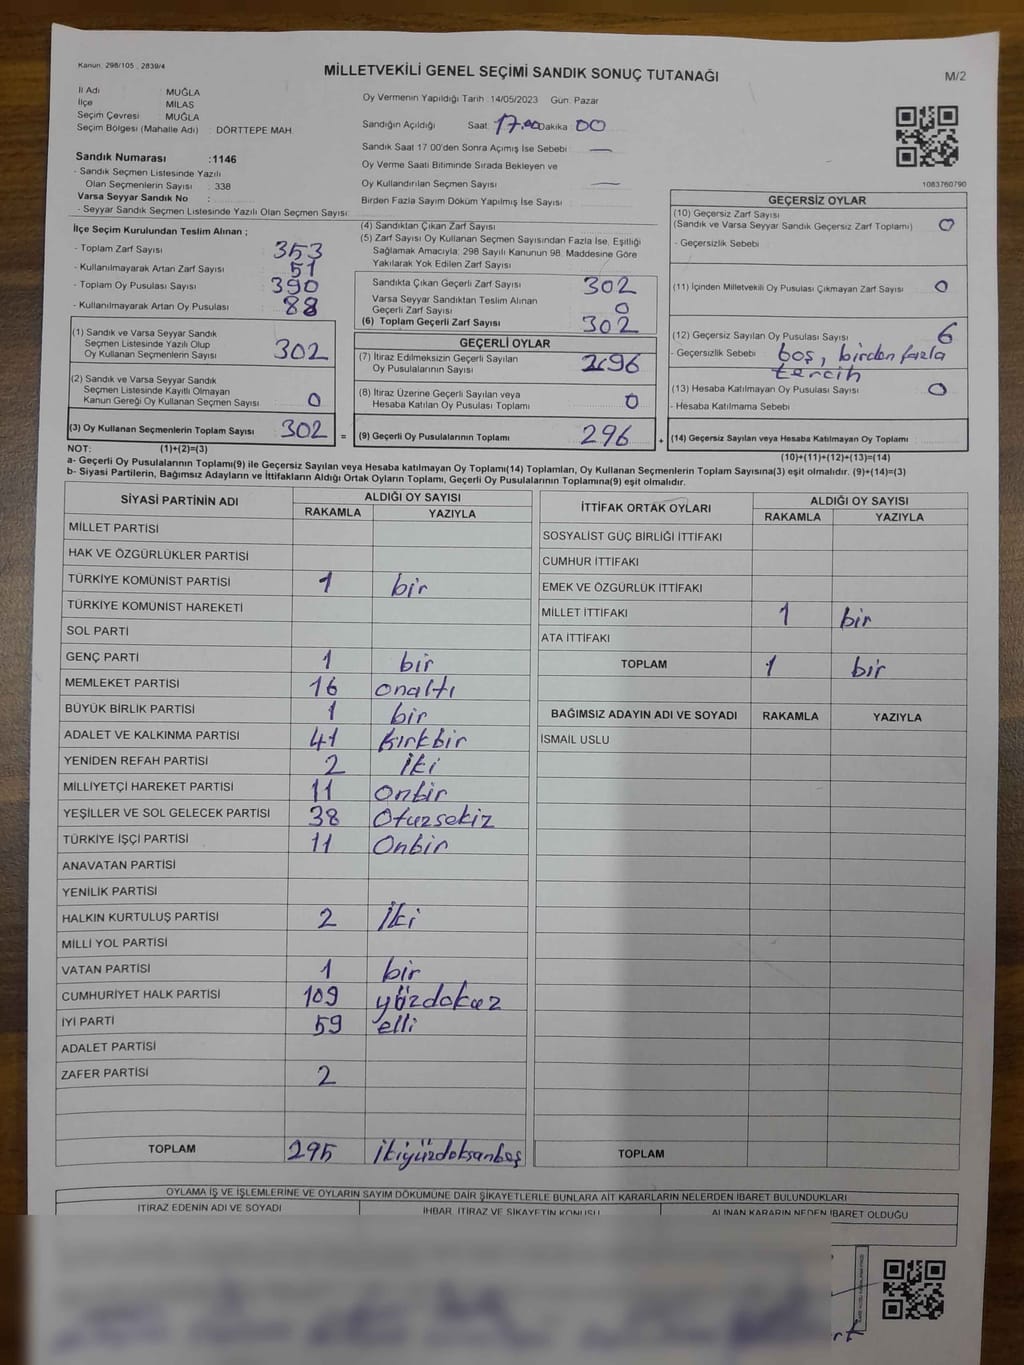 Kanun: 298/105 , 2839/4
MİLLETVEKİLİ GENEL SEÇİMİ SANDIK SONUÇ TUTANAĞI
M/2
İl Adı MUĞLA
İlçe MİLAS
Seçim Çevresi MUĞLA
Seçim Bölgesi (Mahalle Adı) : DÖRTTEPE MAH.
Oy Vermenin Yapıldığı Tarih :14/05/2023 Gün: Pazar
Sandığın Açıldığı Saat: 17.00 Dakika 00
Sandık Saat 17:00'den Sonra Açımış İse Sebebi : —
Oy Verme Saati Bitiminde Sırada Bekleyen ve
Oy Kullandırılan Seçmen Sayısı —
Birden Fazla Sayım Döküm Yapılmış İse Sayısı :
1083760790
Sandık Numarası :1146
- Sandık Seçmen Listesinde Yazılı
Olan Seçmenlerin Sayısı : 338
Varsa Seyyar Sandık No :
- Seyyar Sandık Seçmen Listesinde Yazılı Olan Seçmen Sayısı:
İlçe Seçim Kurulundan Teslim Alınan ;
- Toplam Zarf Sayısı 353
- Kullanılmayarak Artan Zarf Sayısı 51
- Toplam Oy Pusulası Sayısı 390
- Kullanılmayarak Artan Oy Pusulası 88
(1) Sandık ve Varsa Seyyar Sandık
Seçmen Listesinde Yazılı Olup
Oy Kullanan Seçmenlerin Sayısı 302
(2) Sandık ve Varsa Seyyar Sandık
Seçmen Listesinde Kayıtlı Olmayan
Kanun Gereği Oy Kullanan Seçmen Sayısı 0
(3) Oy Kullanan Seçmenlerin Toplam Sayısı 302 =
(4) Sandıktan Çıkan Zarf Sayısı
(5) Zarf Sayısı Oy Kullanan Seçmen Sayısından Fazla İse, Eşitliği
Sağlamak Amacıyla; 298 Sayılı Kanunun 98. Maddesine Göre
Yakılarak Yok Edilen Zarf Sayısı
Sandıkta Çıkan Geçerli Zarf Sayısı 302
Varsa Seyyar Sandıktan Teslim Alınan
Geçerli Zarf Sayısı 0
(6) Toplam Geçerli Zarf Sayısı 302
GEÇERLİ OYLAR
(7) İtiraz Edilmeksizin Geçerli Sayılan
Oy Pusulalarının Sayısı 296
(8) İtiraz Üzerine Geçerli Sayılan veya
Hesaba Katılan Oy Pusulası Toplamı 0
(9) Geçerli Oy Pusulalarının Toplamı 296 +
GEÇERSİZ OYLAR
(10) Geçersiz Zarf Sayısı
(Sandık ve Varsa Seyyar Sandık Geçersiz Zarf Toplamı) 0
- Geçersizlik Sebebi
(11) İçinden Milletvekili Oy Pusulası Çıkmayan Zarf Sayısı 0
(12) Geçersiz Sayılan Oy Pusulası Sayısı 6
- Geçersizlik Sebebi boş, birden fazla
tercih
(13) Hesaba Katılmayan Oy Pusulası Sayısı 0
- Hesaba Katılmama Sebebi
(14) Geçersiz Sayılan veya Hesaba Katılmayan Oy Toplamı
NOT: (1)+(2)=(3)
(10)+(11)+(12)+(13)=(14)
a- Geçerli Oy Pusulalarının Toplamı(9) ile Geçersiz Sayılan veya Hesaba katılmayan Oy Toplamı(14) Toplamları, Oy Kullanan Seçmenlerin Toplam Sayısına(3) eşit olmalıdır. (9)+(14)=(3)
b- Siyasi Partilerin, Bağımsız Adayların ve İttifakların Aldığı Ortak Oyların Toplamı, Geçerli Oy Pusulalarının Toplamına(9) eşit olmalıdır.
SİYASİ PARTİNİN ADI ALDIĞI OY SAYISI
RAKAMLA YAZIYLA
MİLLET PARTİSİ
HAK VE ÖZGÜRLÜKLER PARTİSİ
TÜRKİYE KOMÜNİST PARTİSİ 1 bir
TÜRKİYE KOMÜNİST HAREKETİ
SOL PARTİ
GENÇ PARTİ 1 bir
MEMLEKET PARTİSİ 16 onaltı
BÜYÜK BİRLİK PARTİSİ 1 bir
ADALET VE KALKINMA PARTİSİ 41 kırkbir
YENİDEN REFAH PARTİSİ 2 iki
MİLLİYETÇİ HAREKET PARTİSİ 11 Onbir
YEŞİLLER VE SOL GELECEK PARTİSİ 38 Otuzsekiz
TÜRKİYE İŞÇİ PARTİSİ 11 Onbir
ANAVATAN PARTİSİ
YENİLİK PARTİSİ
HALKIN KURTULUŞ PARTİSİ 2 İki
MİLLİ YOL PARTİSİ
VATAN PARTİSİ 1 bir
CUMHURİYET HALK PARTİSİ 109 yüzdokuz
İYİ PARTİ 59 elli
ADALET PARTİSİ
ZAFER PARTİSİ 2
TOPLAM 295 ikiyüzdoksanbeş
İTTİFAK ORTAK OYLARI ALDIĞI OY SAYISI
RAKAMLA YAZIYLA
SOSYALİST GÜÇ BİRLİĞİ İTTİFAKI
CUMHUR İTTİFAKI
EMEK VE ÖZGÜRLÜK İTTİFAKI
MİLLET İTTİFAKI 1 bir
ATA İTTİFAKI
TOPLAM 1 bir
BAĞIMSIZ ADAYIN ADI VE SOYADI RAKAMLA YAZIYLA
İSMAİL USLU
TOPLAM
OYLAMA İŞ VE İŞLEMLERİNE VE OYLARIN SAYIM DÖKÜMÜNE DAİR ŞİKAYETLERLE BUNLARA AİT KARARLARIN NELERDEN İBARET BULUNDUKLARI
İTİRAZ EDENİN ADI VE SOYADI İHBAR, İTİRAZ VE ŞİKAYETİN KONUSU ALINAN KARARIN NEDEN İBARET OLDUĞU